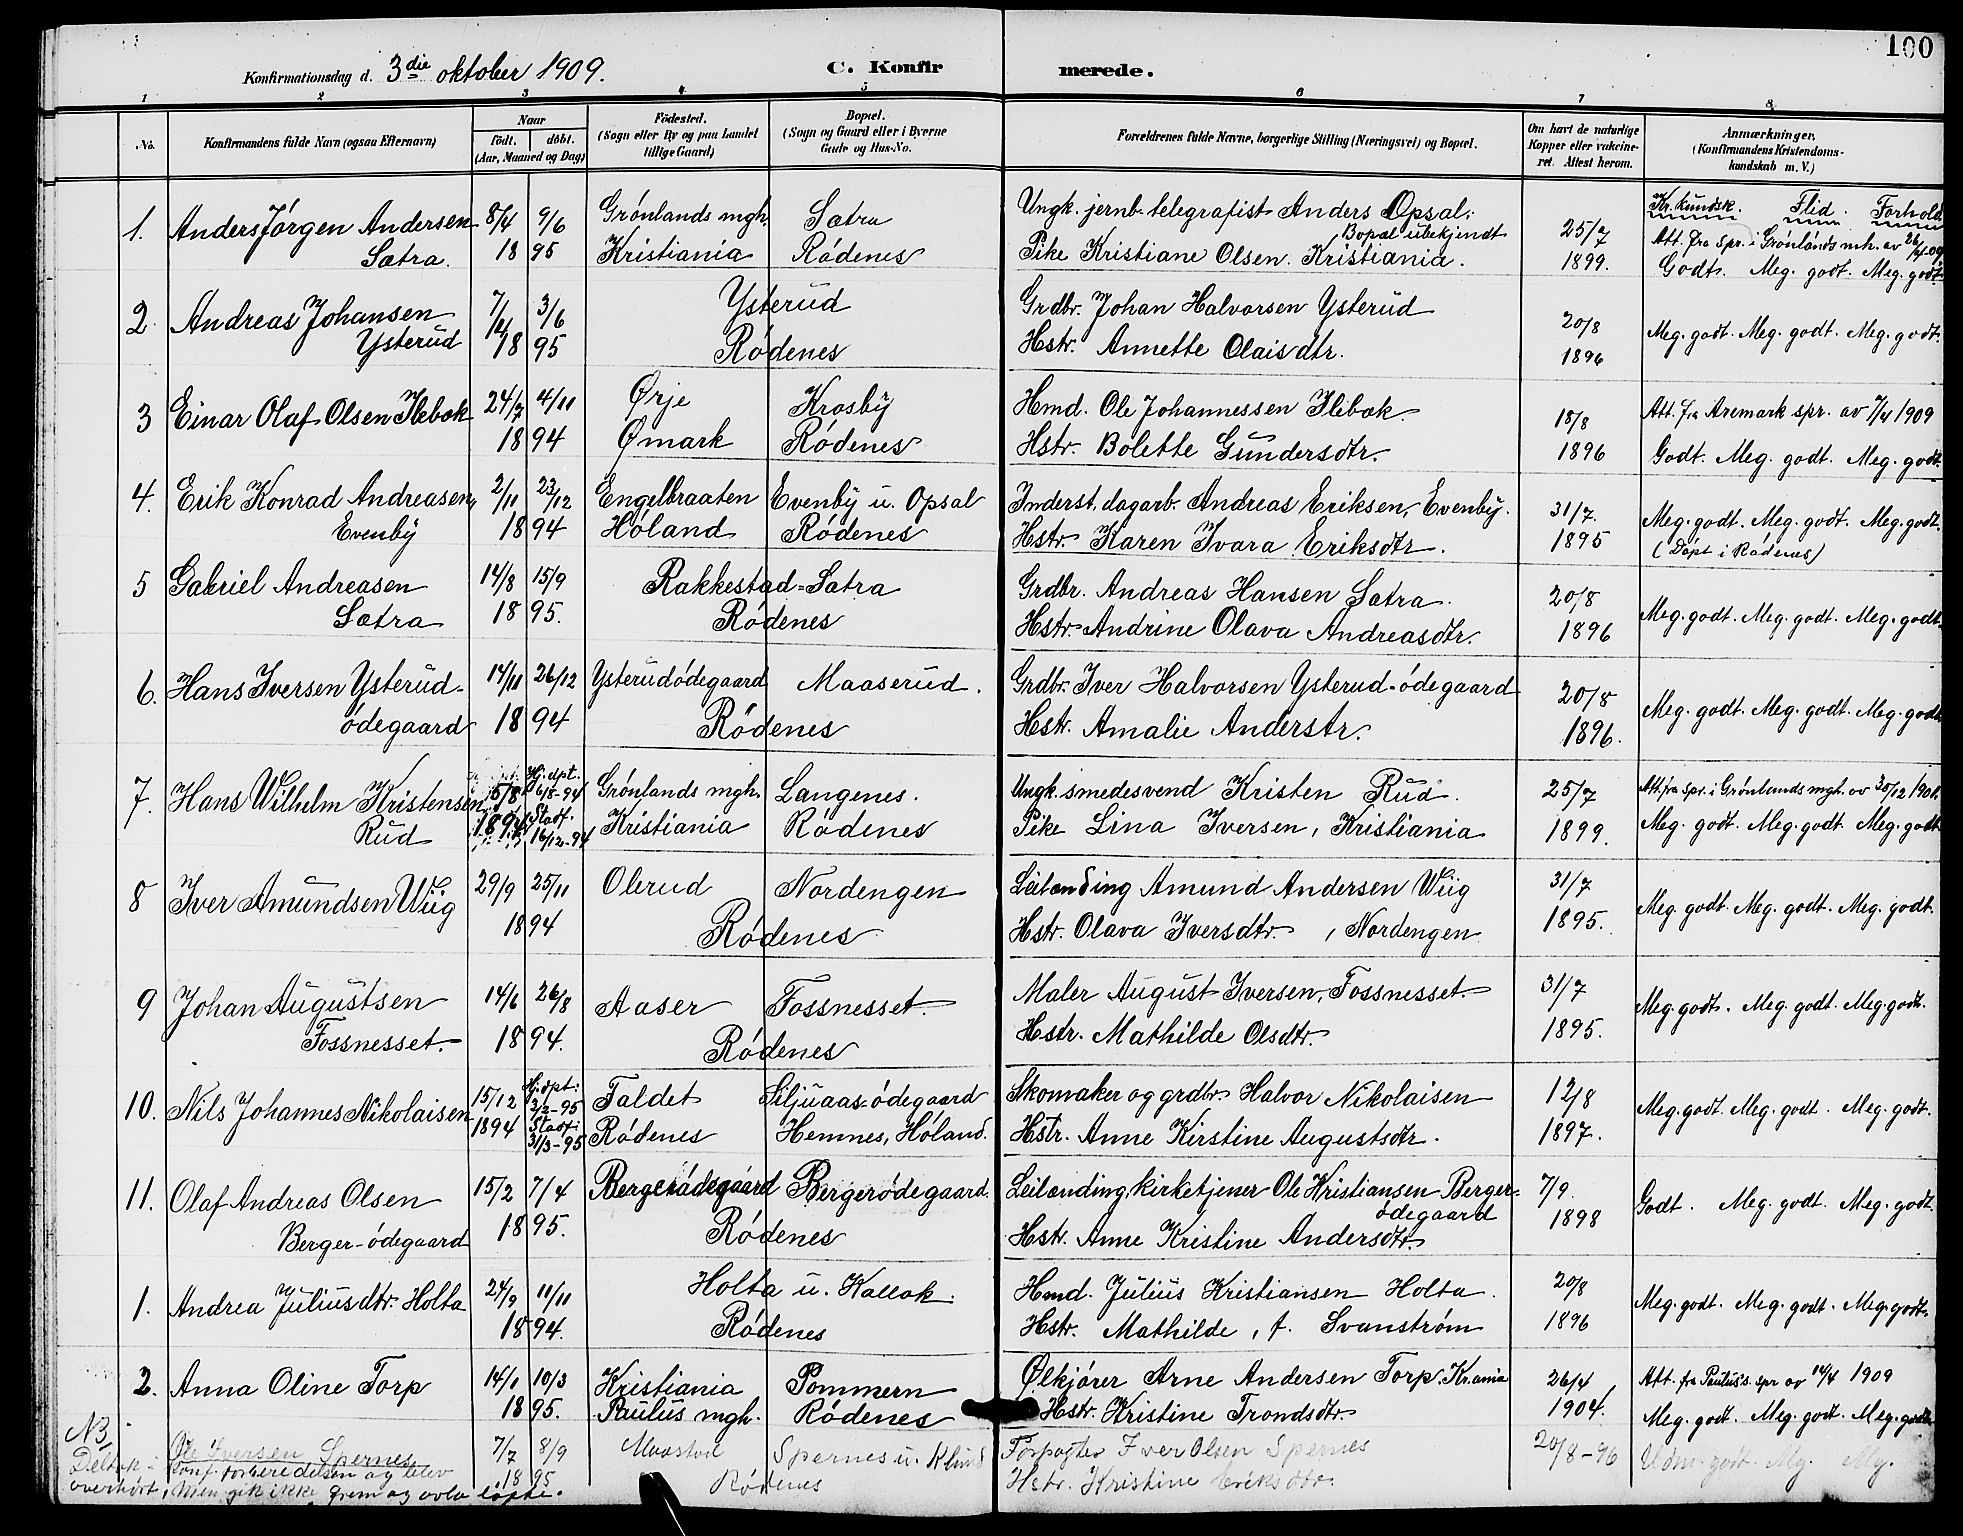 100
Konfirmationsdag d. 3die oktober 1909. C. Konfir merede.
1 2 3 4 5 6 7 8
No. Konfirmandens fulde Navn (ogsaa Efternavn) Naar født. døbt. (Aar, Maaned og Dag) Fødested. (Sogn eller By og paa Landet tillige Gaard) Bopæl. (Sogn og Gaard eller i Byerne Gade og Hus-No. Forældrenes fulde Navne, borgerlige Stilling (Næringsvei) og Bopæl. Om havt de naturlige Kopper eller vakcineret. Attest herom. Anmærkninger, (Konfirmandens Kristendomskundskab m. V.)
Kr. kundsk. Flid. Forhold
1. Anders Jørgen Andersen 8/4 9/6 Grønlands mgh. Sætra Ungk. jernb. telegrafist Anders Opsal; Bopæl ubekjendt 25/7 Att. fra spr. i Grønlands mh. av 26/4 09
Sætra. 18 95 Kristiania Rødenes Pike Kristiane Olsen. Kristiania. 1899. Godt. Meg. godt. Meg. godt.
2 Andreas Johansen 7/4 3/6 Ysterud Grdbr. Johan Halvorsen Ysterud 20/8 Meg. godt. Meg. godt. Meg. godt.
Ysterud 18 95 Rødenes Hstr. Annette Olaisdtr. 1896
3 Einar Olaf Olsen Ilebæk 24/7 4/11 Ørje Krosby Hmd. Ole Johannessen Ilibæk 18/8 Att. fra Aremark spr. av 7/4 1909
18 94 Ømark Rødenes Hstr. Bolette Gundersdtr. 1896 Godt. Meg. godt. Meg. godt.
4. Erik Konrad Andreasen, 2/11 23/12 Engelbraaten Evenby u. Opsal Inderst, dagarb. Andreas Eriksen, Evenby. 31/7. Meg. godt. Meg. godt. Meg. godt.
Evenby 18 94 Høland Rødenes Hstr. Karen Ivara Eriksdtr. 1895 (Døpt i Rødenes)
5 Gabriel Andreasen 14/8 15/9 Rakkestad-Sætra Grdbr. Andreas Hansen Sætra. 20/8 Meg. godt. Meg. godt. Meg. godt.
Sætra 18 95. Rødenes Hstr. Andrine Olava Andreasdtr. 1896
6. Hans Iversen Ysterud- 14/11 26/12 Ysterudødegaard Maaserud. Grdbr. Iver Halvorsen Ysterud-ødegaard 20/8 Meg. godt. Meg. godt. Meg. godt.
ødegaard 18 94 Rødenes Hstr. Amalie Anderstr. 1896.
7. Hans Wilhelm Kristensen 5/8 Hj. dpt. 6/8-94 Grønlands mgh. Langenes. Ungk. smedesvend Kristen Rud. 25/7 Att. fra spr. i Grønlands mgh. av 30/12 1901.
Rud 1894 Stadf. 16/12-94 Kristiania Rødenes Pike Lina Iversen, Kristiania 1899. Meg. godt. Meg. godt. Meg. godt.
8 Iver Amundsen Wiig 29/9 25/11 Olerud Nordengen Leilænding Amund Andersen Wiig 31/7 Meg. godt. Meg. godt. Meg. godt.
18 94 Rødenes Hstr. Olava Iversdtr., Nordengen 1895.
9 Johan Augustsen 14/6 26/8 Aaser Fossnesset. Maler August Iversen, Fossnesset. 31/7 Meg. godt. Meg. godt. Meg. godt.
Fossnesset. 18 94. Rødenes Hstr. Mathilde Olsdtr. 1895.
10. Nils Johannes Nikolaisen 15/12 Hj. dpt: 2/2-95 Faldet Siljuaas-ødegaard Skomaker og grdbr. Halvor Nikolaisen 12/8 Meg. godt. Meg. godt. Meg. godt.
1894 Stadf: 31/3-95 Rødenes Hemnes, Høland. Hstr. Anne Kirstine Augustsdtr. 1897.
11. Olaf Andreas Olsen 15/2 7/4 Bergerødegaard Bergerødegaard. Leilænding, kirketjener Ole Kristiansen Berger-ødegaard 7/9. Godt. Meg. godt. Meg. godt.
Berger-ødegaard 18 95. Rødenes Hstr. Anne Kristine Andersdtr. 1898
1. Andrea Juliusdtr. Holta 24/9 11/11 Holta u. Kallak. Hmd. Julius Kristiansen Holta. 20/8 Meg. godt. Meg. godt. Meg. godt.
18 94. Rødenes Hstr. Mathilde, f. Svanstrøm 1896
2. Anna Oline Torp 14/1 10/3 Kristiania Pommern Ølkjører Arne Andersen Torp. Kr.ania 26/4 Att. fra Paulus's. spr av 14/4 1909
18 95. Paulus mgh. Rødenes Hstr. Kristine Trondsdtr. 1904. Meg. godt. Meg. godt. Meg. godt.
NB. Ole Iversen Spernes 7/7 8/9 Maastad Spernes u. Klund Torpagter Iver Olsen Spernes 20/8-96 Udm. godt. Mg. Mg.
Deltok i konf. forberedelsen og blev 18 95 Rødenes Hstr. Kristine Eriksdtr.
overhørt, men gik ikke frem og avla løfte.